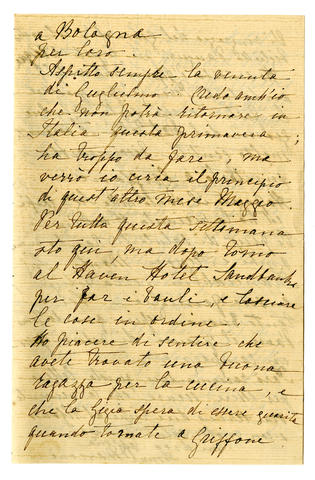 a Bologna
per loro.
Aspetto sempre la venuta
di Guglielmo. Credo anch'io
che non potrà ritornare in
Italia questa primavera;
ha troppo da fare, ma
verrò io circa il principio
di quest'altro mese Maggio.
Per tutta questa settimana
sto qui, ma dopo torno
al Haven Hotel Sandbanks
per far i bauli, e lasciare
le cose in ordine.
Ho piacere di sentire che
avete trovato una buona
ragazza per la cucina, e
che la Gigia spera di essere guarita
quando tornate a Griffone